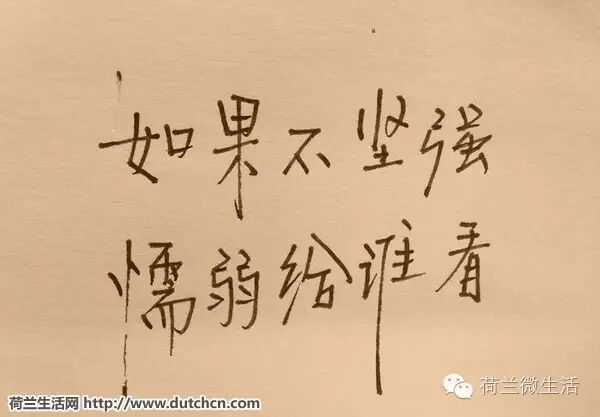 如果不坚强
懦弱给谁看
荷兰微生活
荷兰生活网 http://www.dutchcn.com